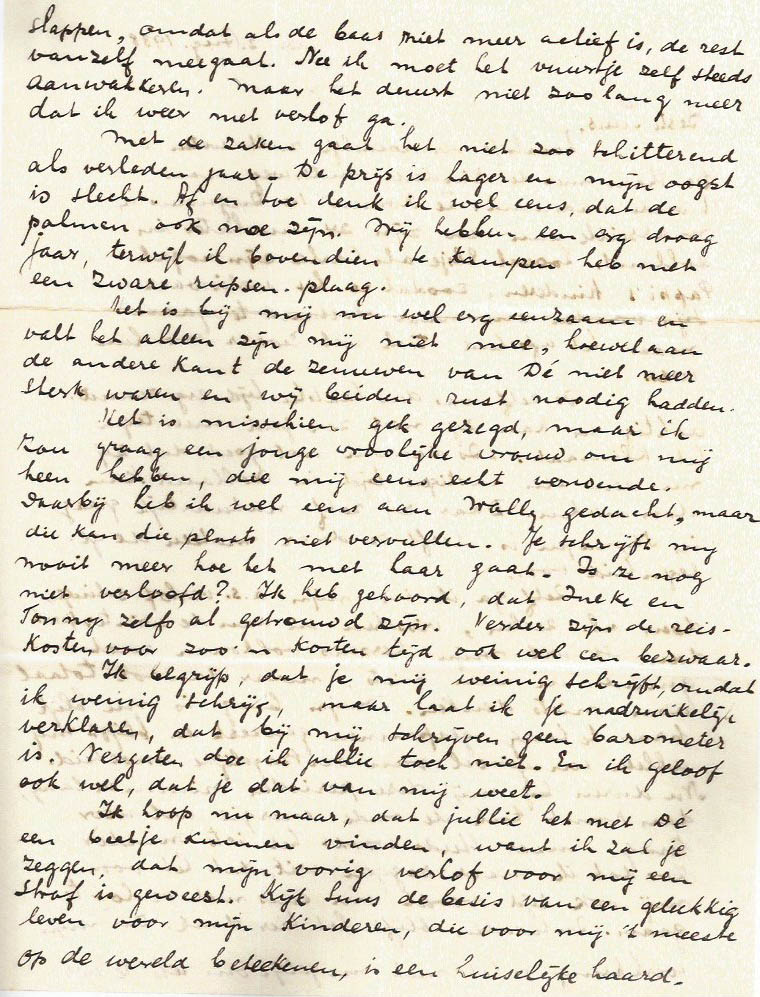 slappen, omdat als de baas niet meer actief is, de rest
vanzelf meegaat. Nee ik moet het vuurtje zelf steeds
aanwakkeren. Maar het duurt niet zoo lang meer
dat ik weer met verlof ga.
Met de zaken gaat het niet zoo schitterend
als verleden jaar. De prijs is lager en mijn oogst
is slecht. Af en toe denk ik wel eens, dat de
palmen ook moe zijn. Wij hebben een erg droog
jaar, terwijl ik bovendien te kampen heb met
een zware rupsen-plaag.
Het is bij mij nu wel erg eenzaam en
valt het alleen zijn mij niet mee, hoewel aan
de andere kant de zenuwen van Dé niet meer
sterk waren en wij beiden rust noodig hadden.
Het is misschien gek gezegd, maar ik
zou graag een jonge vroolijke vrouw om mij
heen hebben, die mij eens echt verwende.
Daarbij heb ik wel eens aan Wally gedacht, maar
die kan die plaats niet vervullen. Je schrijft mij
nooit meer hoe het met haar gaat. Is ze nog
niet verloofd? Ik heb gehoord, dat Ineke en
Tonny zelfs al getrouwd zijn. Verder zijn de reis-
kosten voor zoo'n korten tijd ook wel een bezwaar.
Ik begrijp, dat je mij weinig schrijft, omdat
ik weinig schrijf, maar laat ik je nadrukelijk
verklaren, dat bij mij schrijven geen barometer
is. Vergeten doe ik jullie toch niet. En ik geloof
ook wel, dat je dat van mij weet.
Ik hoop nu maar, dat jullie het met Dé
een beetje kunnen vinden, want ik zal je
zeggen, dat mijn vorig verlof voor mij een
straf is geweest. Kijk Suus de basis van een gelukkig
leven voor mijn kinderen, die voor mij 't meeste
op de wereld beteekenen, is een huiselijke haard.